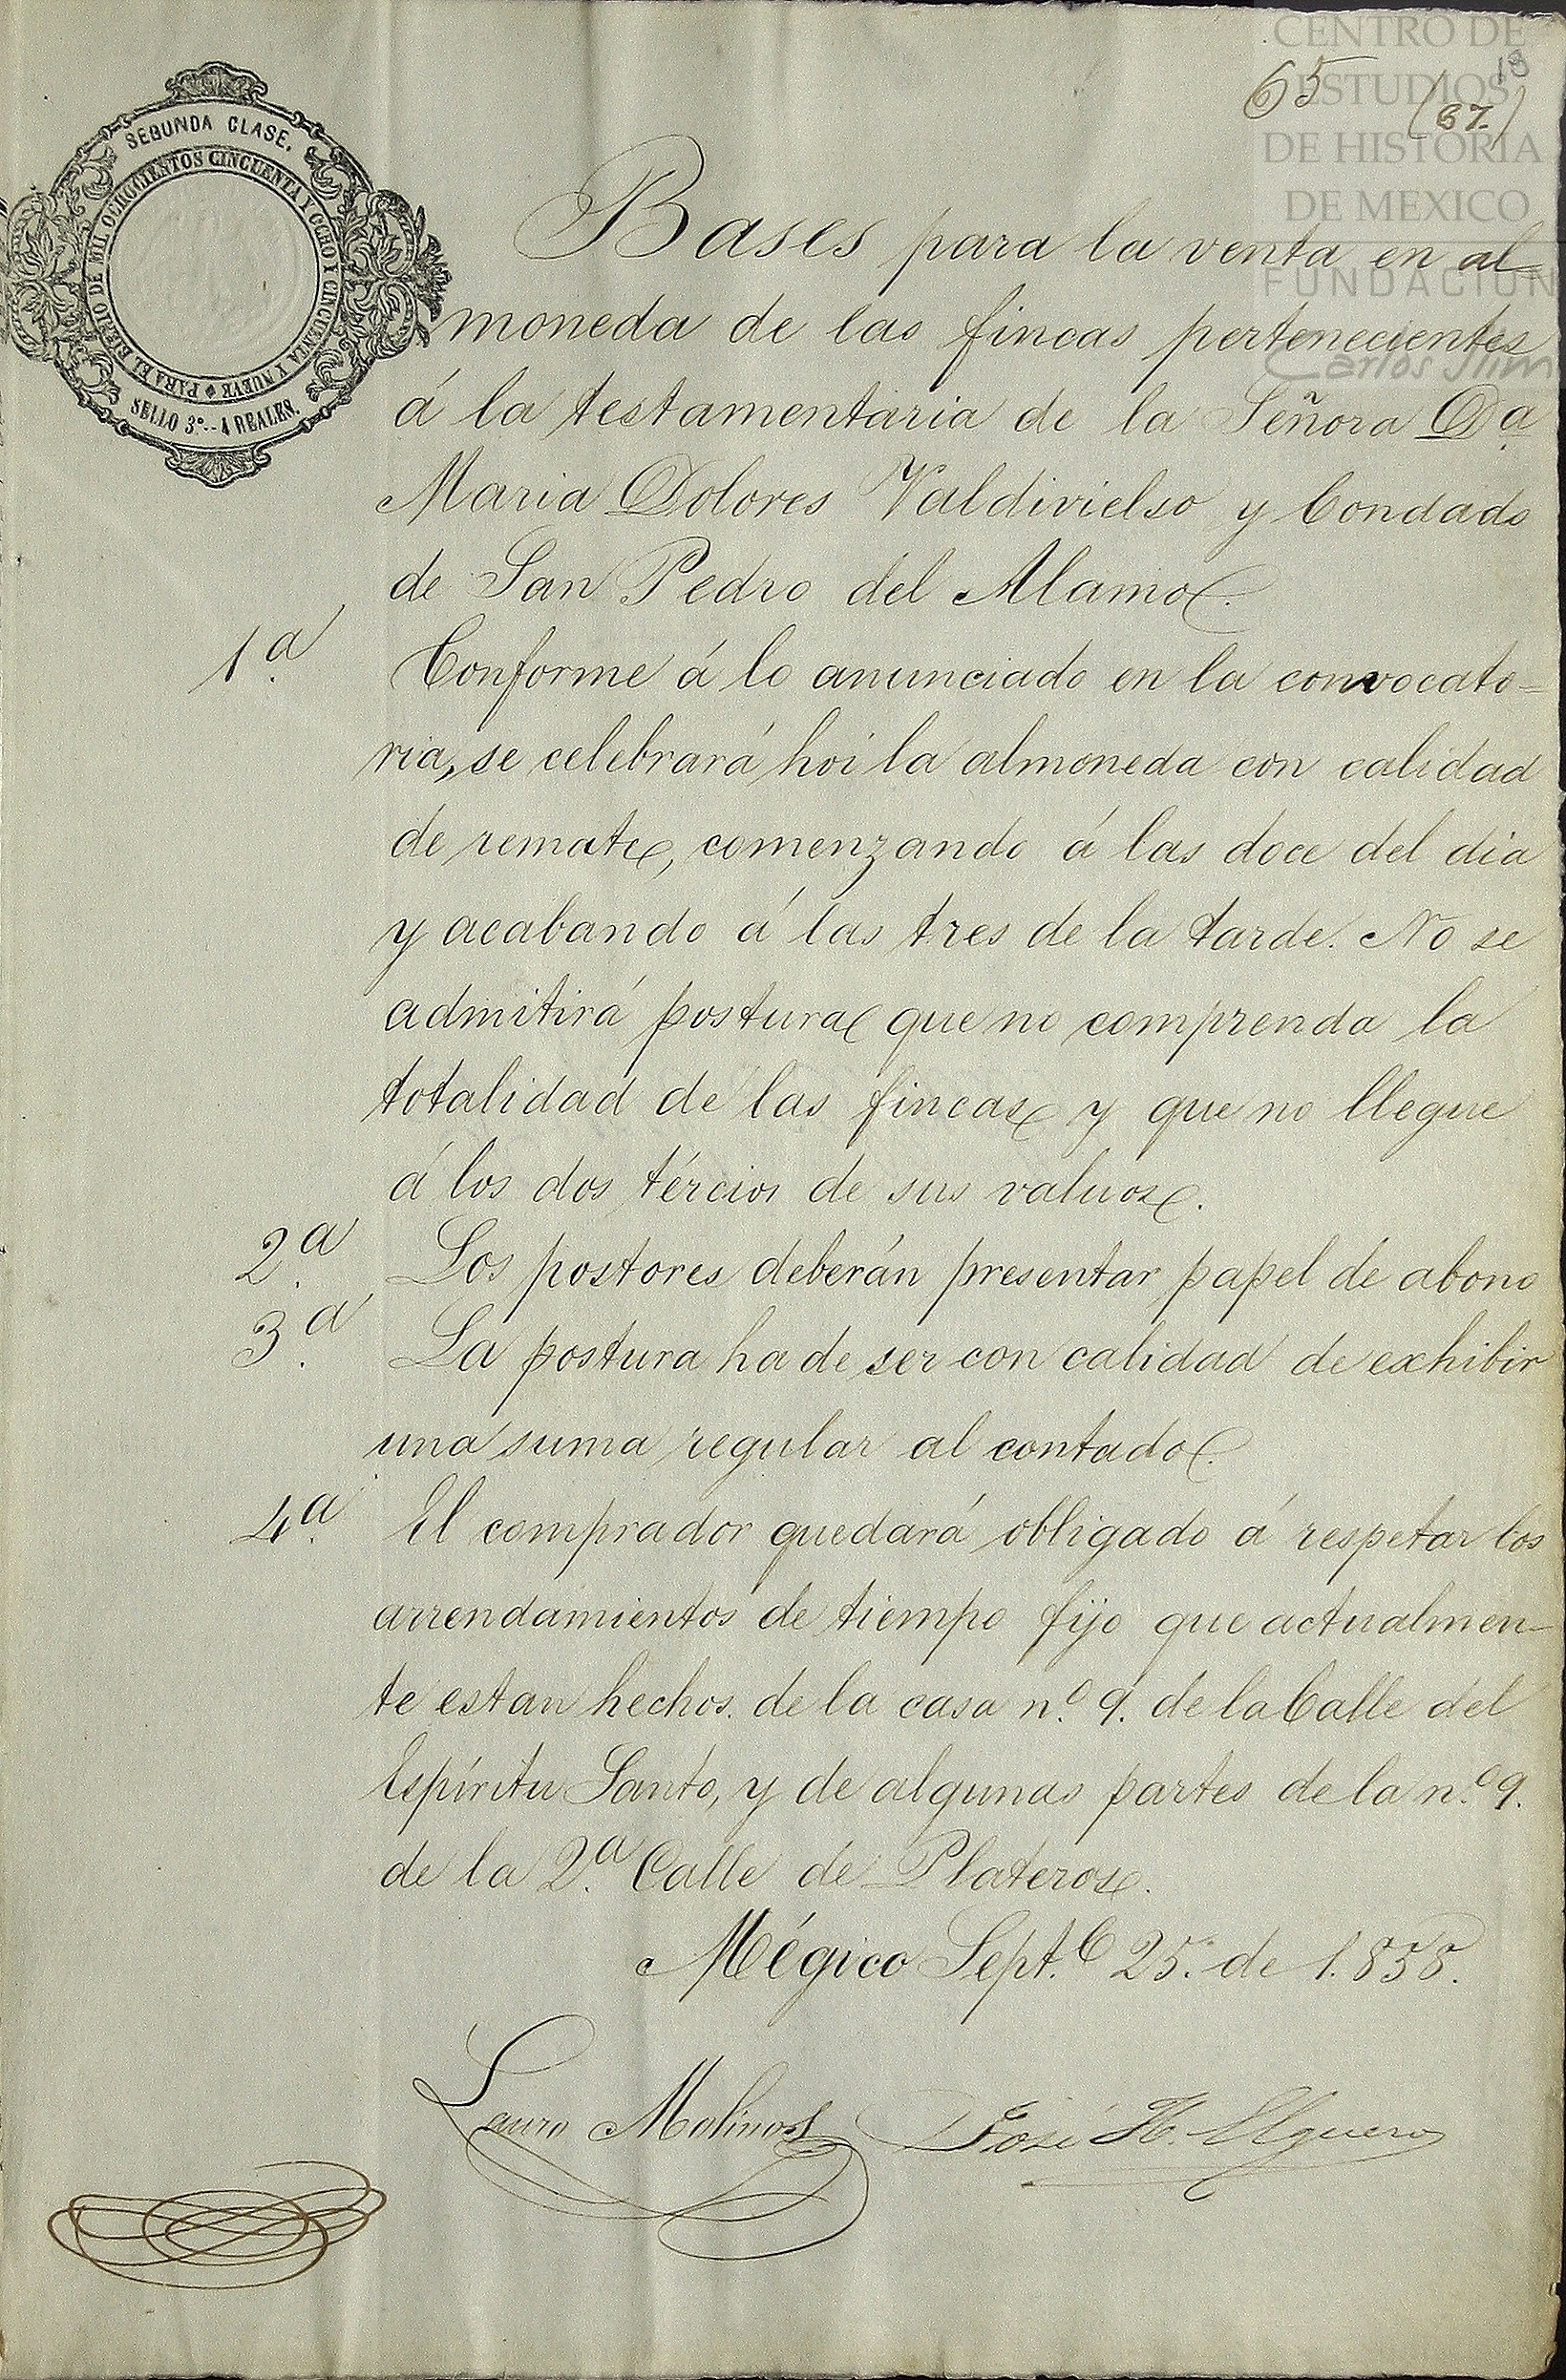 CENTRO DE
ESTUDIOS
DE HISTORIA
DE MEXICO
FUNDACION
Carlos Slim
18
65 (67.)
SEGUNDA CLASE.
PARA EL BIENIO DE MIL OCHOCIENTOS CINCUENTA Y OCHO Y CINCUENTA Y NUEVE
SELLO 3º.--4 REALES.
Bases para la venta en al-
moneda de las fincas pertenecientes
á la testamentaria de la Señora Dª
Maria Dolores Valdivielso y Condado
de San Pedro del Alamo.
1ª. Conforme á lo anunciado en la convocato=
ria, se celebrará hoi la almoneda con calidad
de remate, comenzando á las doce del dia
y acabando á las tres de la tarde. No se
admitirá postura que no comprenda la
totalidad de las fincas y que no llegue
á los dos tércios de sus valuos.
2ª. Los postores deberán presentar papel de abono
3ª. La postura ha de ser con calidad de exhibir
una suma regular al contado.
4ª. El comprador quedará obligado á respetar los
arrendamientos de tiempo fijo que actualmen-
te estan hechos de la casa n.º 9. de la Calle del
Espíritu Santo, y de algunas partes de la n.º 9.
de la 2ª. Calle de Plateros.
Mégico Sept.e 25. de 1.858.
Lauro Molinos José H. Elguero